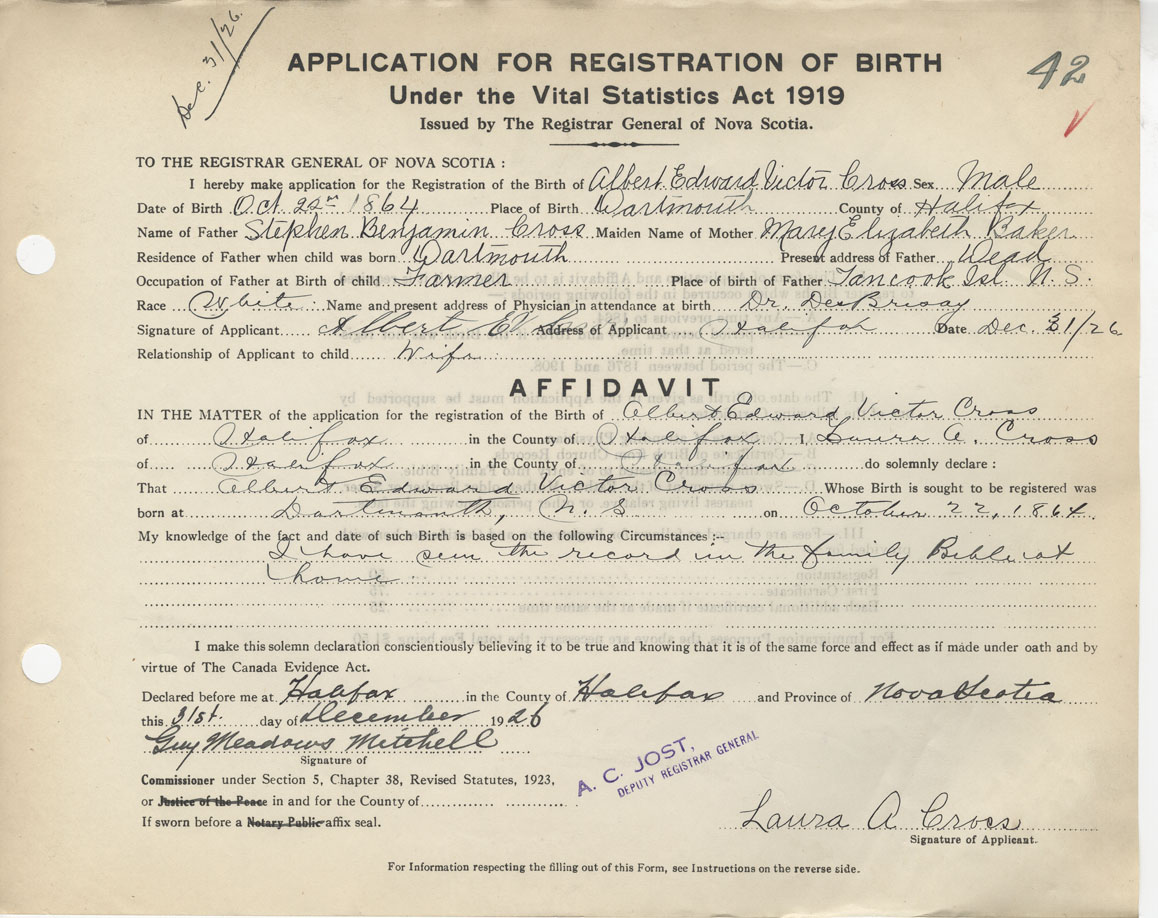 Dec. 31/26.
42
APPLICATION FOR REGISTRATION OF BIRTH
Under the Vital Statistics Act 1919
Issued by The Registrar General of Nova Scotia.
TO THE REGISTRAR GENERAL OF NOVA SCOTIA :
I hereby make application for the Registration of the Birth of Albert Edward Victor Cross Sex Male
Date of Birth Oct. 22nd 1864 Place of Birth Dartmouth County of Halifax
Name of Father Stephen Benjamin Cross Maiden Name of Mother Mary Elizabeth Baker
Residence of Father when child was born Dartmouth Present address of Father Dead
Occupation of Father at Birth of child Farmer Place of birth of Father Tancook Isl. N.S.
Race White Name and present address of Physician in attendance at birth Dr. DesBrisay
Signature of Applicant Albert E. Address of Applicant Halifax Date Dec. 31/26
Relationship of Applicant to child Wife
AFFIDAVIT
IN THE MATTER of the application for the registration of the Birth of Albert Edward Victor Cross
of Halifax in the County of Halifax I, Laura A. Cross
of Halifax in the County of Halifax do solemnly declare :
That Albert Edward Victor Cross Whose Birth is sought to be registered was
born at Dartmouth, N. S. on October 22, 1864.
My knowledge of the fact and date of such Birth is based on the following Circumstances :-
I have seen the record in the family Bible at
home
I make this solemn declaration conscientiously believing it to be true and knowing that it is of the same force and effect as if made under oath and by
virtue of The Canada Evidence Act.
Declared before me at Halifax in the County of Halifax and Province of Nova Scotia
this 31st. day of December 1926
Guy Meadows Mitchell
Signature of
Commissioner under Section 5, Chapter 38, Revised Statutes, 1923,
or Justice of the Peace in and for the County of
If sworn before a Notary Public affix seal.
A. C. JOST,
DEPUTY REGISTRAR GENERAL
Laura A Cross
Signature of Applicant.
For Information respecting the filling out of this Form, see Instructions on the reverse side.